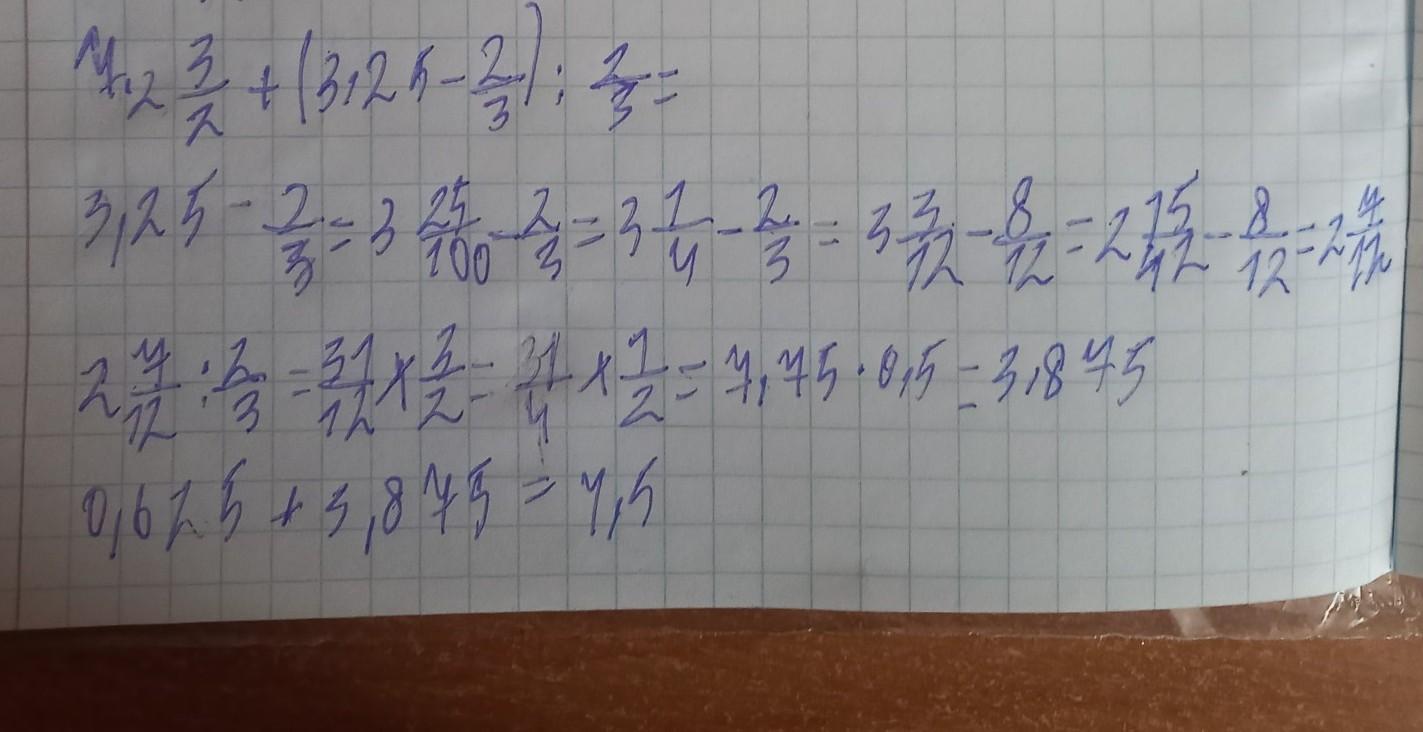 4,2 3/2 + (3,25 - 2/3) : 2/3 =
3,25 - 2/3 = 3 25/100 - 2/3 = 3 1/4 - 2/3 = 3 3/12 - 8/12 = 2 15/12 - 8/12 = 2 7/12
2 7/12 : 2/3 = 31/12 × 3/2 = 31/4 × 1/2 = 7,75 · 0,5 = 3,875
0,625 + 3,875 = 4,5